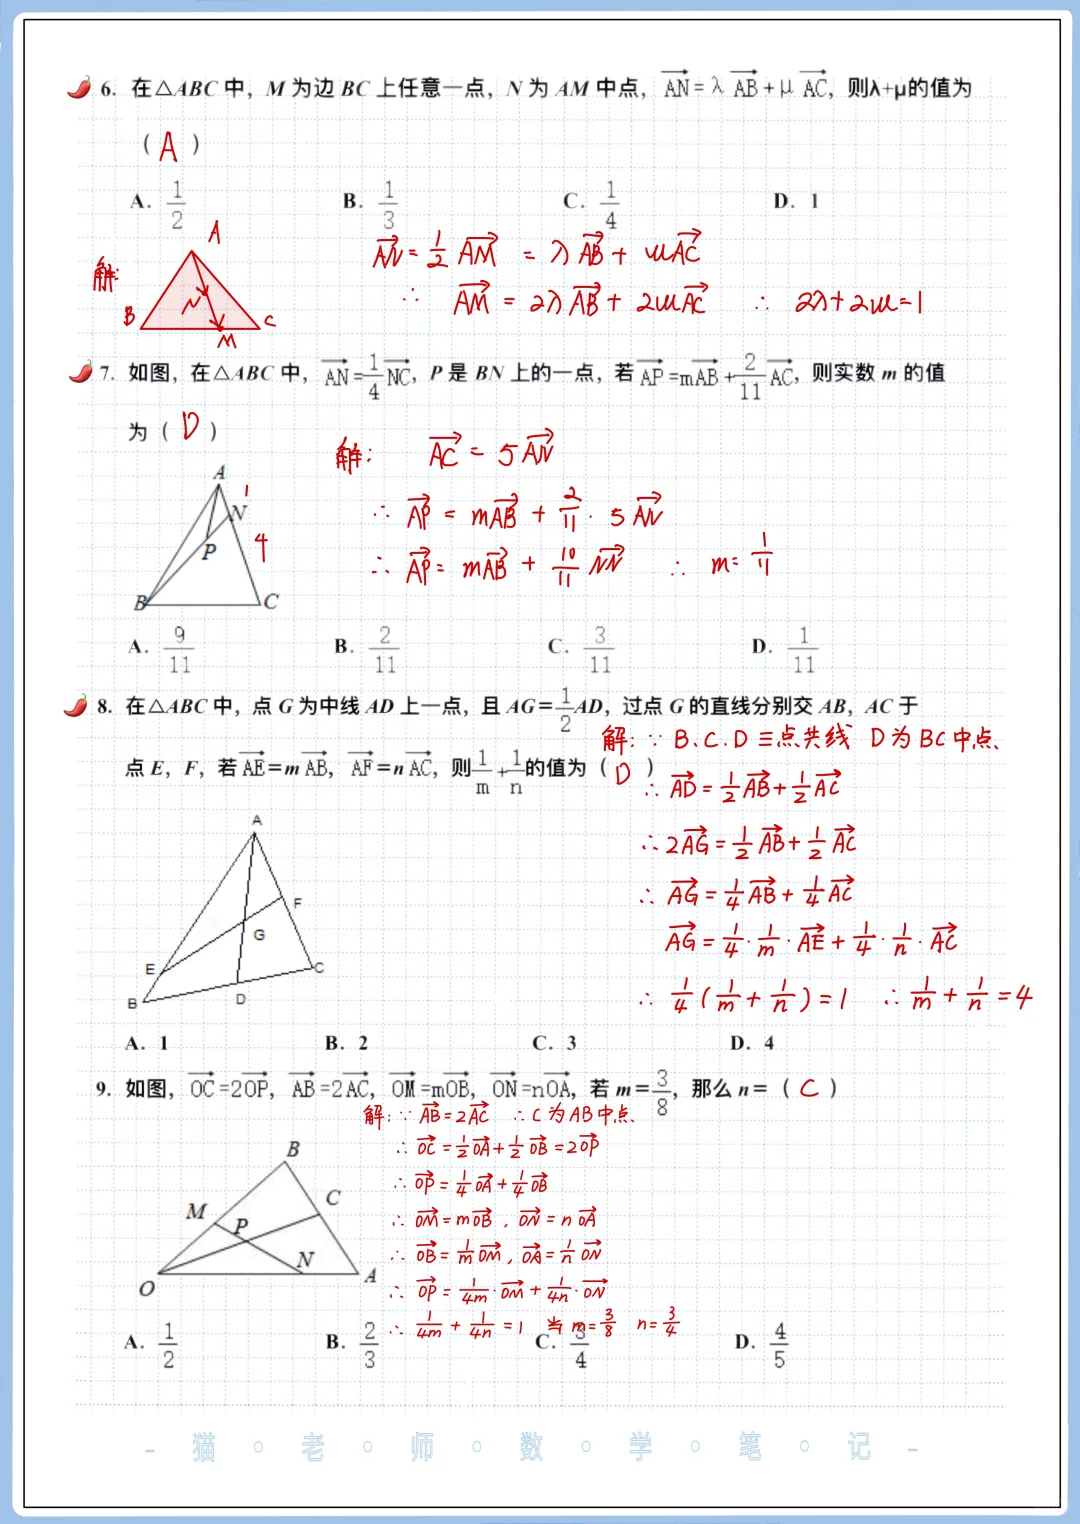 6. 在△ABC 中，M 为边 BC 上任意一点，N 为 AM 中点，$\overrightarrow{AN}=λ\overrightarrow{AB}+μ\overrightarrow{AC}$，则λ+μ的值为
（ A ）
A. $\frac{1}{2}$ B. $\frac{1}{3}$ C. $\frac{1}{4}$ D. 1
解:
A
B N C
M
$\overrightarrow{AN}=\frac{1}{2}\overrightarrow{AM}=λ\overrightarrow{AB}+μ\overrightarrow{AC}$
∴ $\overrightarrow{AM}=2λ\overrightarrow{AB}+2μ\overrightarrow{AC}$ ∴ 2λ+2μ=1
7. 如图，在△ABC 中，$\overrightarrow{AN}=\frac{1}{4}\overrightarrow{NC}$，P 是 BN 上的一点，若$\overrightarrow{AP}=m\overrightarrow{AB}+\frac{2}{11}\overrightarrow{AC}$，则实数 m 的值
为（ D ）
解: $\overrightarrow{AC}=5\overrightarrow{AN}$
∴ $\overrightarrow{AP}=m\overrightarrow{AB}+\frac{2}{11}·5\overrightarrow{AN}$
∴ $\overrightarrow{AP}=m\overrightarrow{AB}+\frac{10}{11}\overrightarrow{NN}$ ∴ m=$\frac{1}{11}$
A
1
N
4
P
B C
A. $\frac{9}{11}$ B. $\frac{2}{11}$ C. $\frac{3}{11}$ D. $\frac{1}{11}$
8. 在△ABC 中，点 G 为中线 AD 上一点，且 AG=$\frac{1}{2}$AD，过点 G 的直线分别交 AB，AC 于
点 E，F，若$\overrightarrow{AE}=m\overrightarrow{AB}$，$\overrightarrow{AF}=n\overrightarrow{AC}$，则$\frac{1}{m}+\frac{1}{n}$的值为（ D ）
解: ∵ B、C、D 三点共线 D为BC中点、
∴ $\overrightarrow{AD}=\frac{1}{2}\overrightarrow{AB}+\frac{1}{2}\overrightarrow{AC}$
∴ $2\overrightarrow{AG}=\frac{1}{2}\overrightarrow{AB}+\frac{1}{2}\overrightarrow{AC}$
∴ $\overrightarrow{AG}=\frac{1}{4}\overrightarrow{AB}+\frac{1}{4}\overrightarrow{AC}$
$\overrightarrow{AG}=\frac{1}{4}·\frac{1}{m}·\overrightarrow{AE}+\frac{1}{4}·\frac{1}{n}·\overrightarrow{AC}$
∴ $\frac{1}{4}(\frac{1}{m}+\frac{1}{n})=1$ ∴ $\frac{1}{m}+\frac{1}{n}=4$
A
F
G
E C
B D
A. 1 B. 2 C. 3 D. 4
9. 如图，$\overrightarrow{OC}=2\overrightarrow{OP}$，$\overrightarrow{AB}=2\overrightarrow{AC}$，$\overrightarrow{OM}=m\overrightarrow{OB}$，$\overrightarrow{ON}=n\overrightarrow{OA}$，若 m=$\frac{3}{8}$，那么 n=（ C ）
解: ∵ $\overrightarrow{AB}=2\overrightarrow{AC}$ ∴ C为AB中点、
∴ $\overrightarrow{OC}=\frac{1}{2}\overrightarrow{OA}+\frac{1}{2}\overrightarrow{OB}=2\overrightarrow{OP}$
∴ $\overrightarrow{OP}=\frac{1}{4}\overrightarrow{OA}+\frac{1}{4}\overrightarrow{OB}$
∴ $\overrightarrow{OM}=m\overrightarrow{OB}$，$\overrightarrow{ON}=n\overrightarrow{OA}$
∴ $\overrightarrow{OB}=\frac{1}{m}\overrightarrow{OM}$，$\overrightarrow{OA}=\frac{1}{n}\overrightarrow{ON}$
∴ $\overrightarrow{OP}=\frac{1}{4m}·\overrightarrow{OM}+\frac{1}{4n}·\overrightarrow{ON}$
∴ $\frac{1}{4m}+\frac{1}{4n}=1$ 当 m=$\frac{3}{8}$ n=$\frac{3}{4}$
B
C
M
P
N
O A
A. $\frac{1}{2}$ B. $\frac{2}{3}$ C. $\frac{3}{4}$ D. $\frac{4}{5}$
- 猫 · 老 · 师 · 数 · 学 · 笔 · 记 -